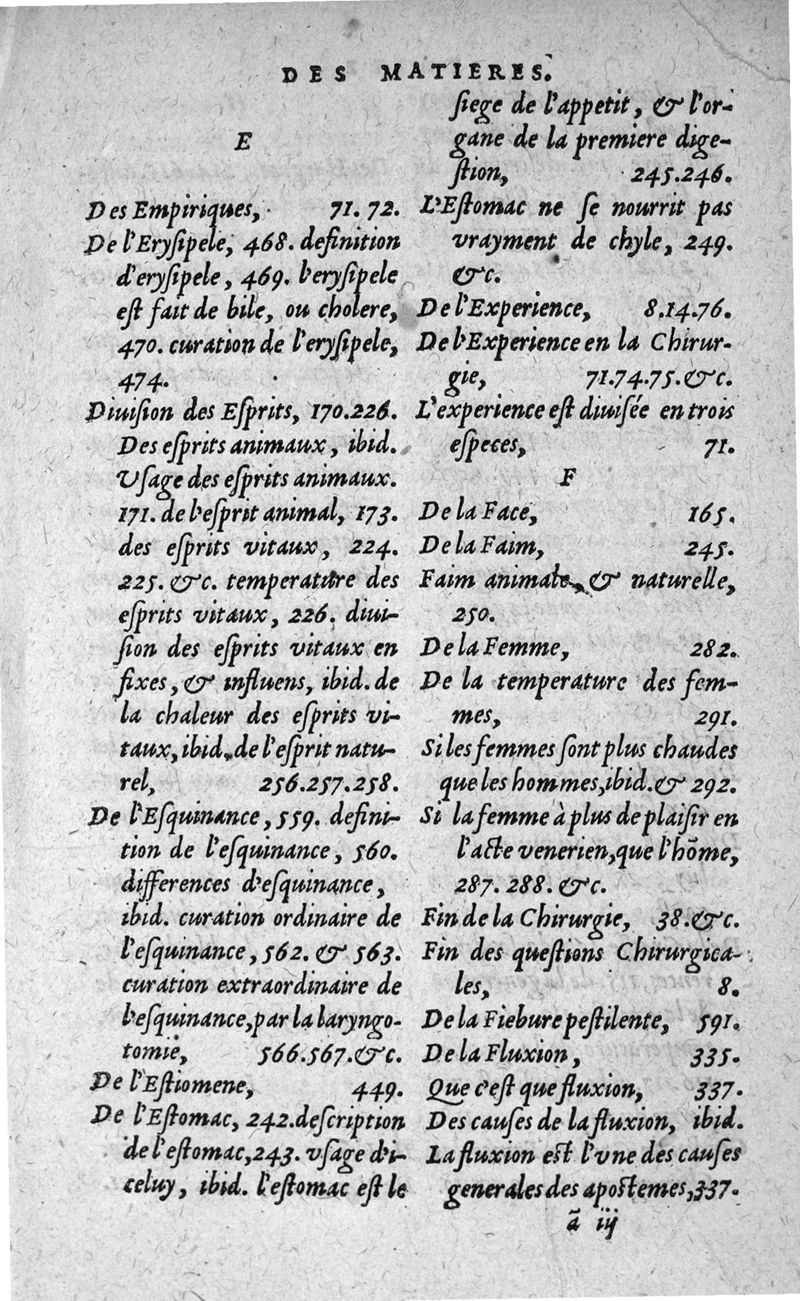 DES MATIERES.
E
Des Empiriques, 71. 72.
De l'Eryſipele, 468. definition
d'eryſipele, 469. l'eryſipele
eſt fait de bile, ou cholere,
470. curation de l'eryſipele,
474.
Diuiſion des Eſprits, 170.226.
Des eſprits animaux, ibid.
Vſage des eſprits animaux.
171. de l'eſprit animal, 173.
des eſprits vitaux, 224.
225. &c. temperature des
eſprits vitaux, 226. diui-
ſion des eſprits vitaux en
fixes, & influens, ibid. de
la chaleur des eſprits vi-
taux, ibid. de l'eſprit natu-
rel, 256.257.258.
De l'Eſquinance, 559. defini-
tion de l'eſquinance, 560.
differences d'eſquinance,
ibid. curation ordinaire de
l'eſquinance, 562. & 563.
curation extraordinaire de
l'eſquinance, par la laryngo-
tomie, 566.567.&c.
De l'Eſtiomene, 449.
De l'Eſtomac, 242. deſcription
de l'eſtomac, 243. vſage d'i-
celuy, ibid. l'eſtomac eſt le
ſiege de l'appetit, & l'or-
gane de la premiere dige-
ſtion, 245.246.
L'Eſtomac ne ſe nourrit pas
vrayment de chyle, 249.
&c.
De l'Experience, 8.14.76.
De l'Experience en la Chirur-
gie, 71.74.75.&c.
L'experience eſt diuiſée en trois
eſpeces, 71.
F
De la Face, 165.
De la Faim, 245.
Faim animale, & naturelle,
250.
De la Femme, 282.
De la temperature des fem-
mes, 291.
Si les femmes ſont plus chaudes
que les hommes, ibid. & 292.
Si la femme à plus de plaiſir en
l'acte venerien, que l'hõme,
287. 288. &c.
Fin de la Chirurgie, 38.&c.
Fin des queſtions Chirurgica-
les, 8.
De la Fiebure peſtilente, 591.
De la Fluxion, 335.
Que c'eſt que fluxion, 337.
Des cauſes de la fluxion, ibid.
La fluxion eſt l'vne des cauſes
generales des apoſtemes, 337.
ã iij